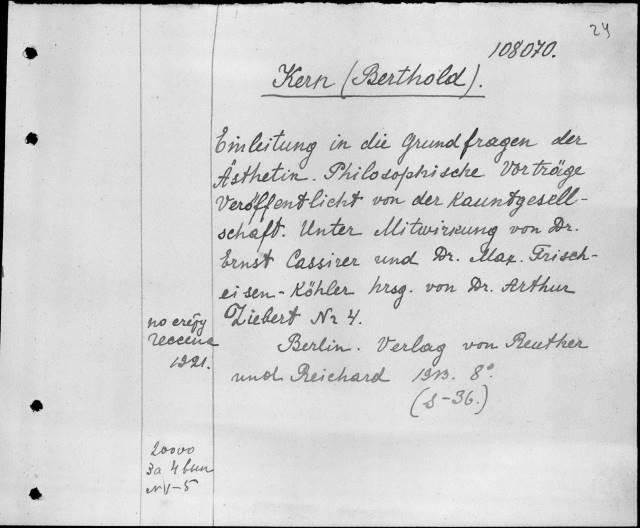 24
108070.
Kern (Berthold).
Einleitung in die Grundfragen der
Ästhetin. Philosophische Vorträge
Veröffentlicht von der Kauntgesell-
schaft. Unter Mitwirkung von Dr.
Ernst Cassirer und Dr. Max. Frisch-
eisen-Köhler hrsg. von Dr. Arthur
Liebert Nr 4.
Berlin. Verlag von Reuther
und Reichard 1913. 8°.
(S-36.)
1921.
20000
за 4